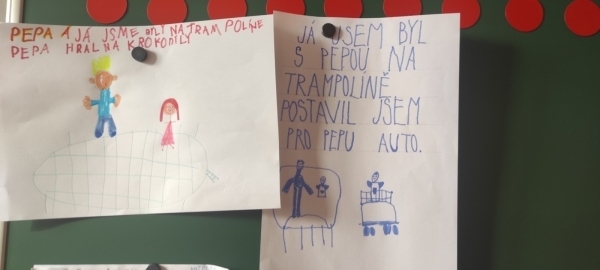 PEPA A JÁ JSME BYLY NA TRAMPOLÍNE
PEPA HRAL NA KROKODILI
JÁ JSEM BYL
S PEPOU NA
TRAMPOLÍNĚ
POSTAVIL JSEM
PRO PEPU AUTO.